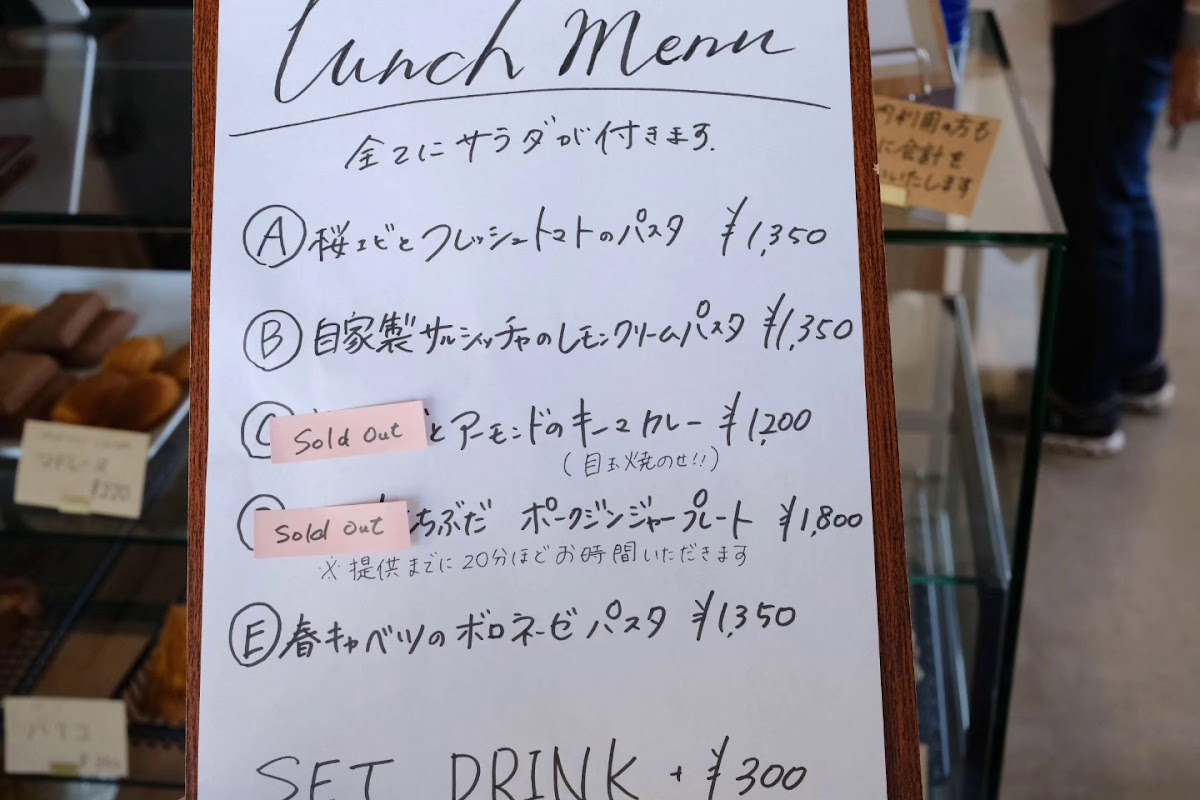 Lunch Menu
全てにサラダが付きます.
Ⓐ桜エビとフレッシュトマトのパスタ ¥1,350
Ⓑ自家製サルシッチャのレモンクリームパスタ ¥1,350
Ⓒ Sold out とアーモンドのキーマカレー ¥1,200
(目玉焼のせ!!)
Sold out ちぶだ ポークジンジャープレート ¥1,800
※提供までに20分ほどお時間いただきます
Ⓔ春キャベツのボロネーゼパスタ ¥1,350
SET DRINK + ¥300
内利用の方も
に会計を
いたします
マドレーヌ
¥220